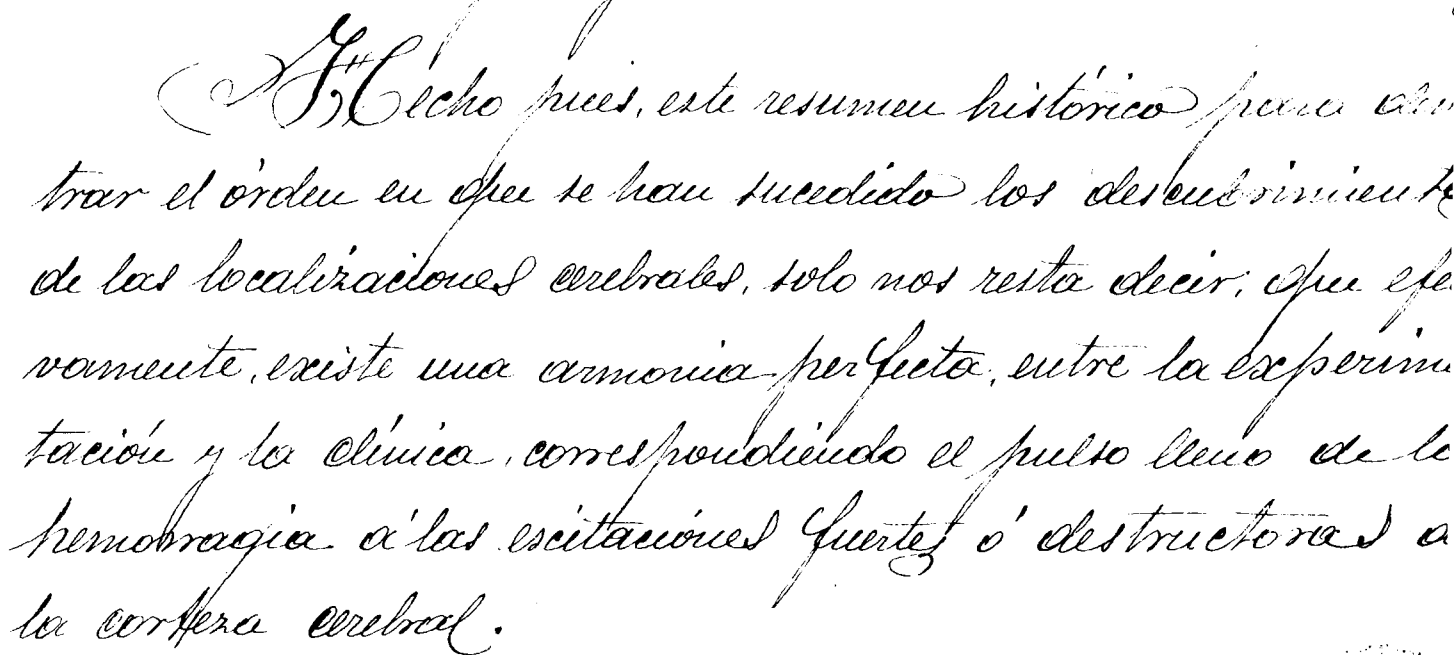 Hecho pues, este resumen histórico para
trar el órden en que se han sucedido los descubrimiento
de las localizaciones cerebrales, solo nos resta decir, que efe
vamente, existe una armonia perfecta, entre la experim
tación y la clínica, correspondiendo el pulso lleno de la
hemorragia á las escitaciónes fuertes ó destructoras
la corteza cerebral.